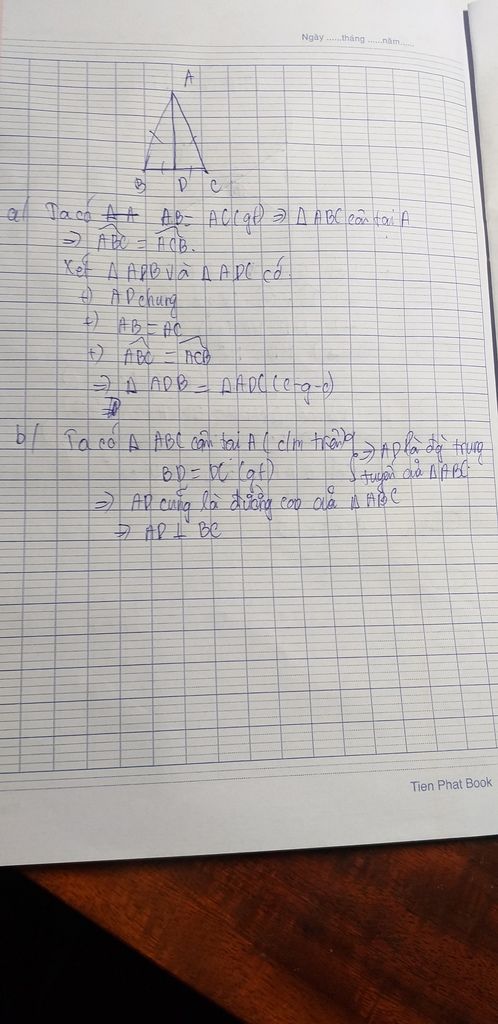 Ngày ......tháng ......năm......
A
B D C
a/ Ta có AB = AC (gt) ⇒ Δ ABC cân tại A
⇒ ABC = ACB.
Xét Δ ADB và Δ ADC có
+) AD chung
+) AB = AC
+) ABC = ACB
⇒ Δ ADB = ΔADC (c-g-c)
b/ Ta có Δ ABC cân tại A ( c/m trên)
BD = DC (gt)
⇒ AD là đg trung
tuyến của ΔABC
⇒ AD cũng là đường cao của Δ ABC
⇒ AD ⊥ BC
Tien Phat Book